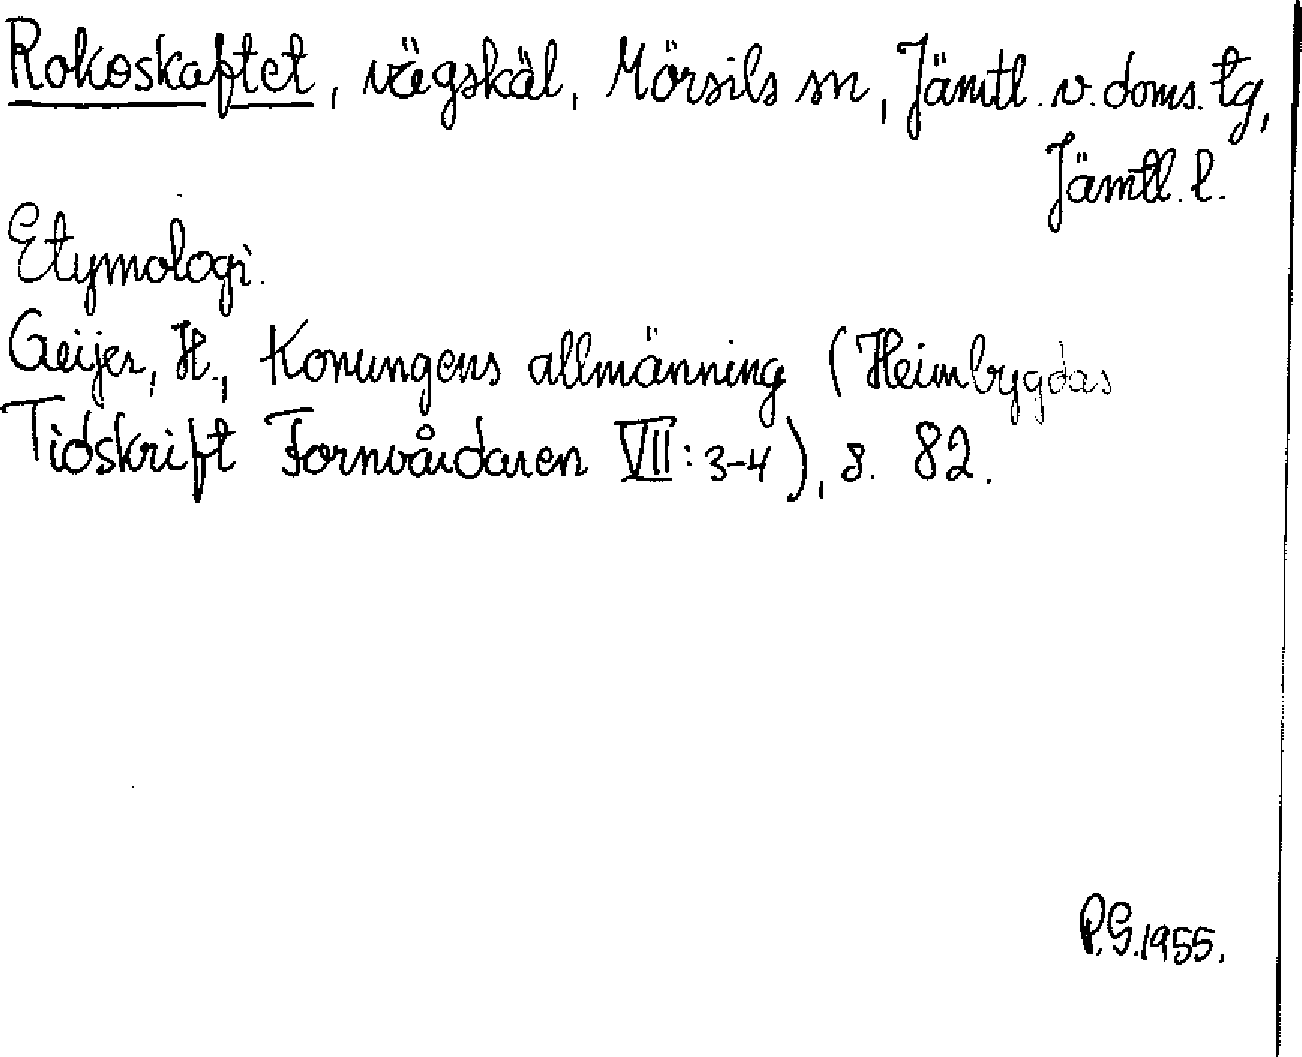 Rokoskaftet, vägskäl, Mörsils sn, Jämtl. v. doms. tg,
Jämtl. l.
Etymologi.
Geijer, H., Konungens allmänning (Heimbygdas
Tidskrift Fornvårdaren VII: 3-4), s. 82.
P.G. 1955.